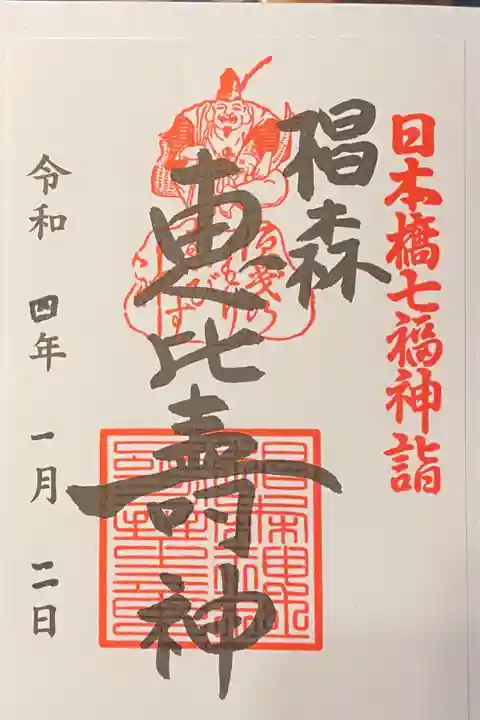 日本橋七福神詣
椙森
恵比壽神
令和 四年 一月 二日